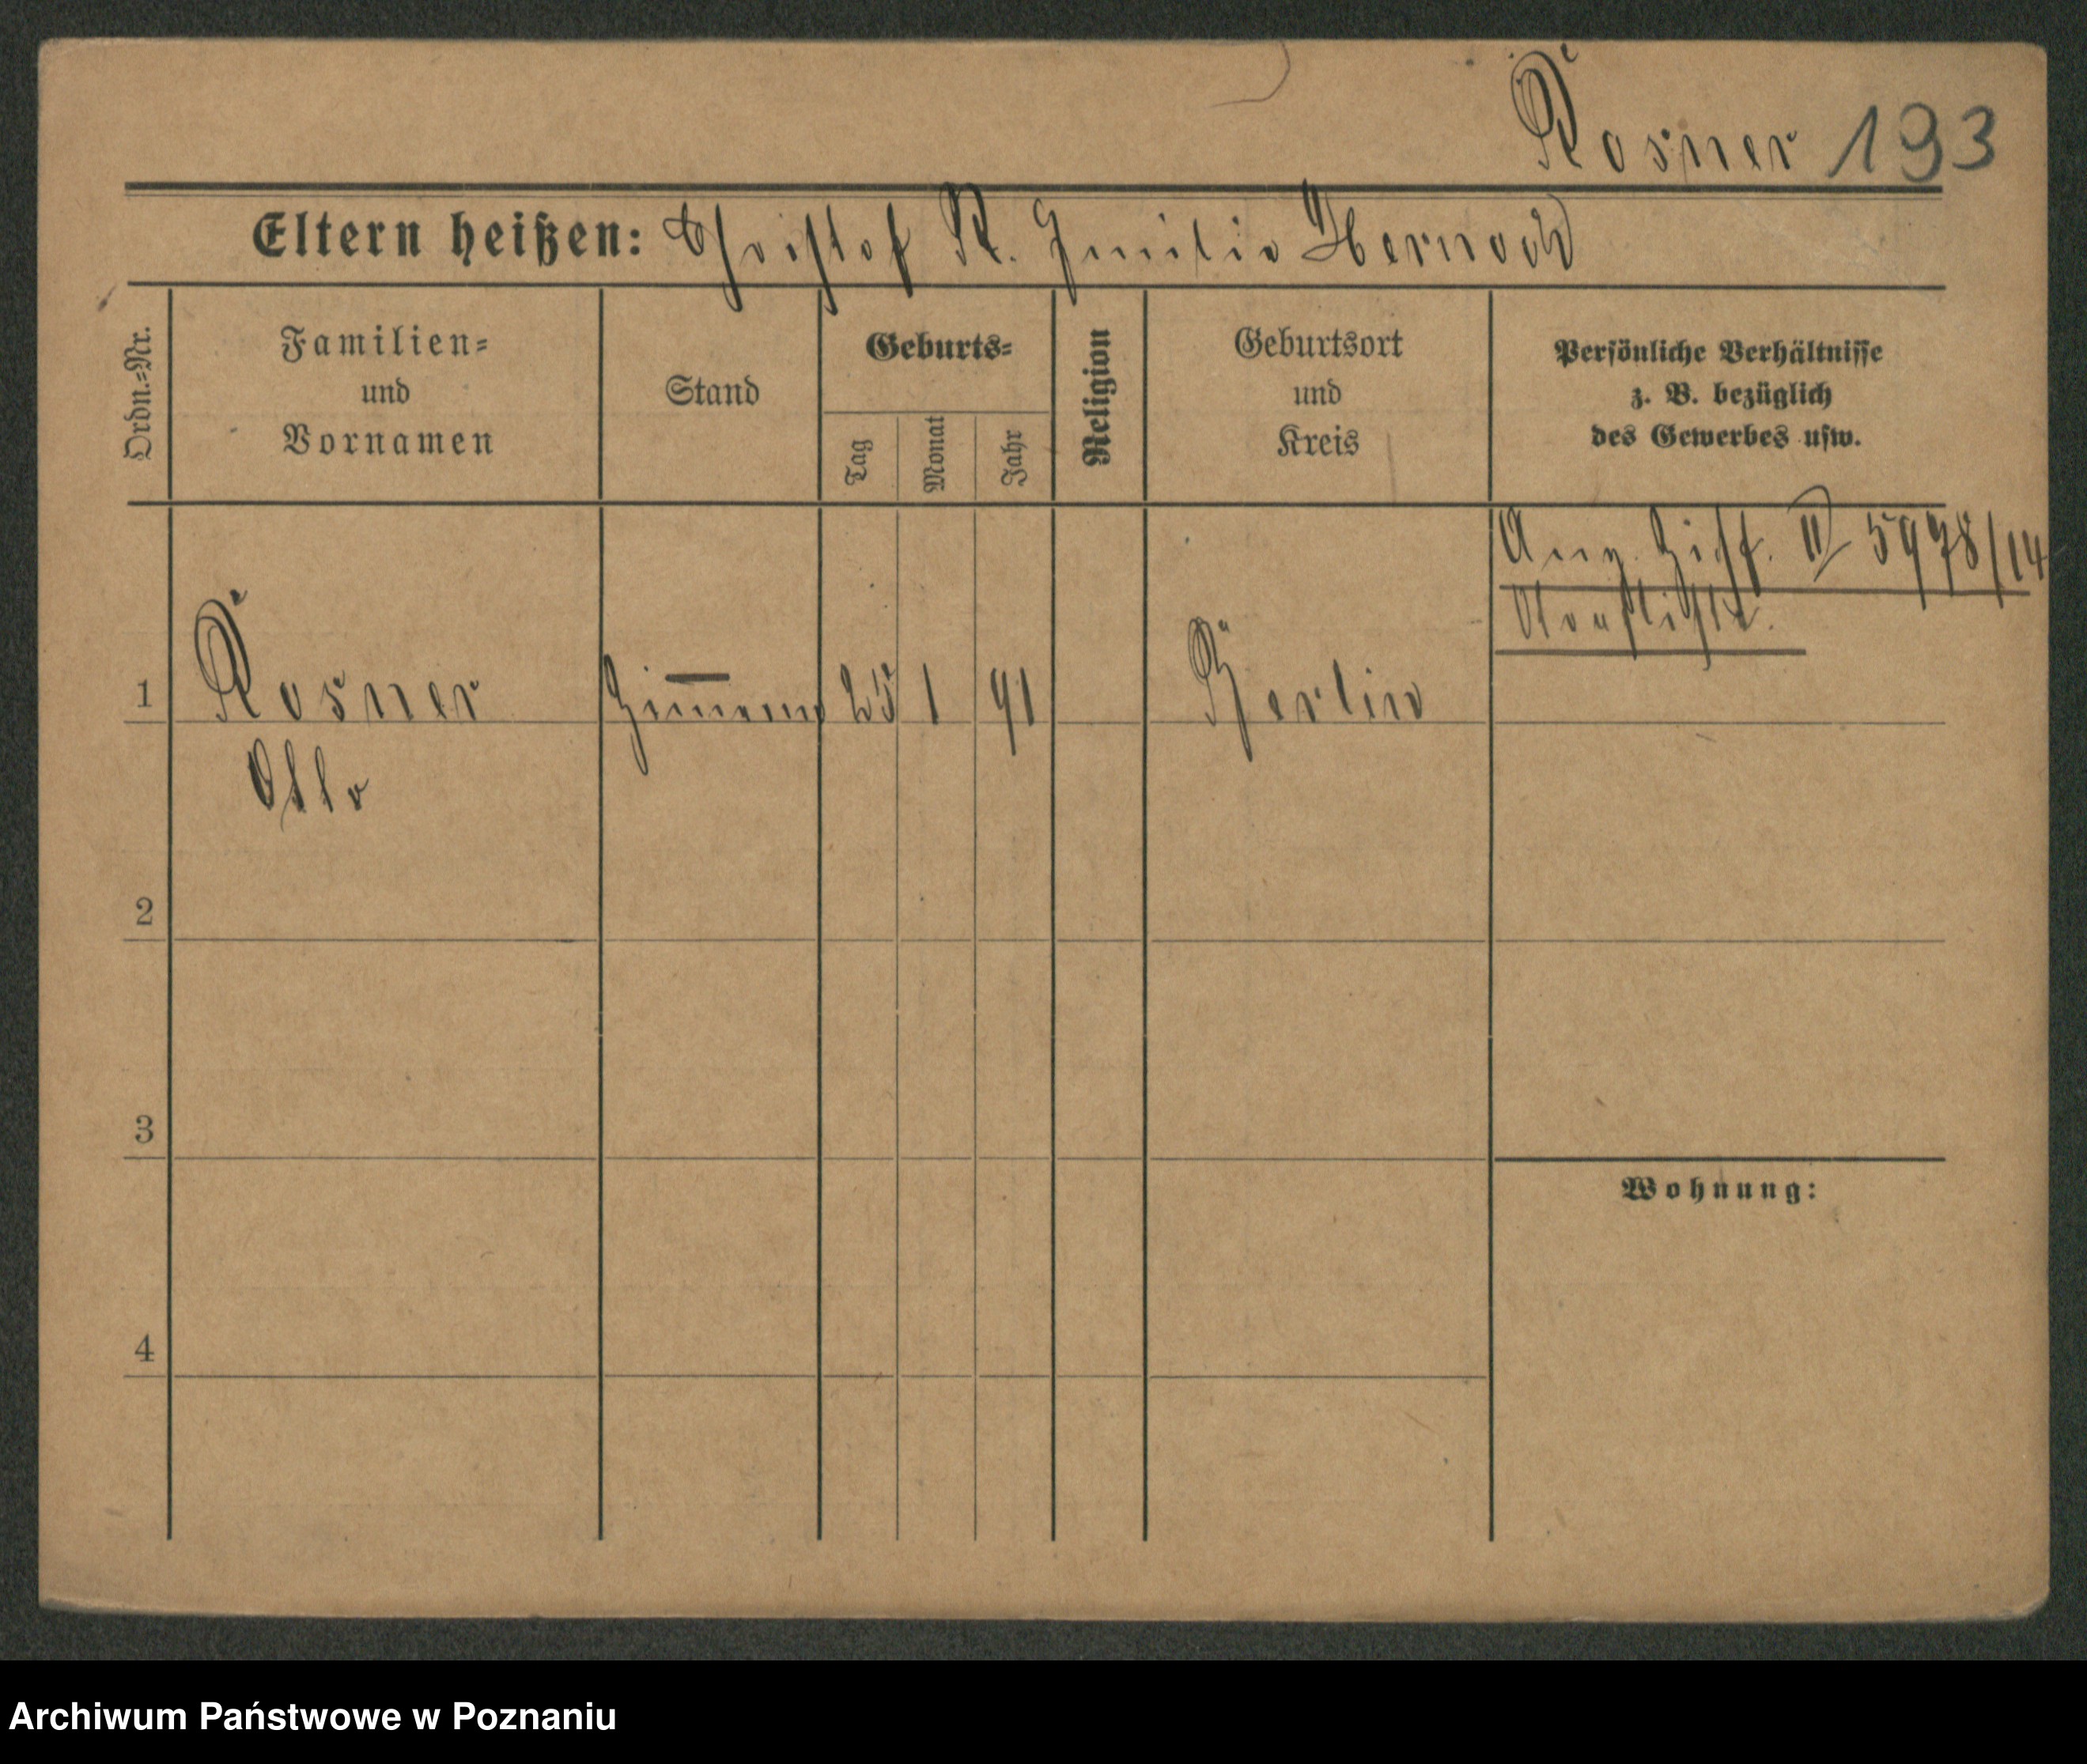 Rosner 193
Eltern heißen: Christof R. Emilie
Ordn.-Nr.
Familien-
und
Vornamen
Stand
Geburts-
Tag
Monat
Jahr
Religion
Geburtsort
und
Kreis
Persönliche Verhältnisse
z. B. bezüglich
des Gewerbes usw.
Ang. Ziff. II 5978/14
1 Rosner 25 1 91 Berlin
Otto
2
3
Wohnung:
4
Archiwum Państwowe w Poznaniu